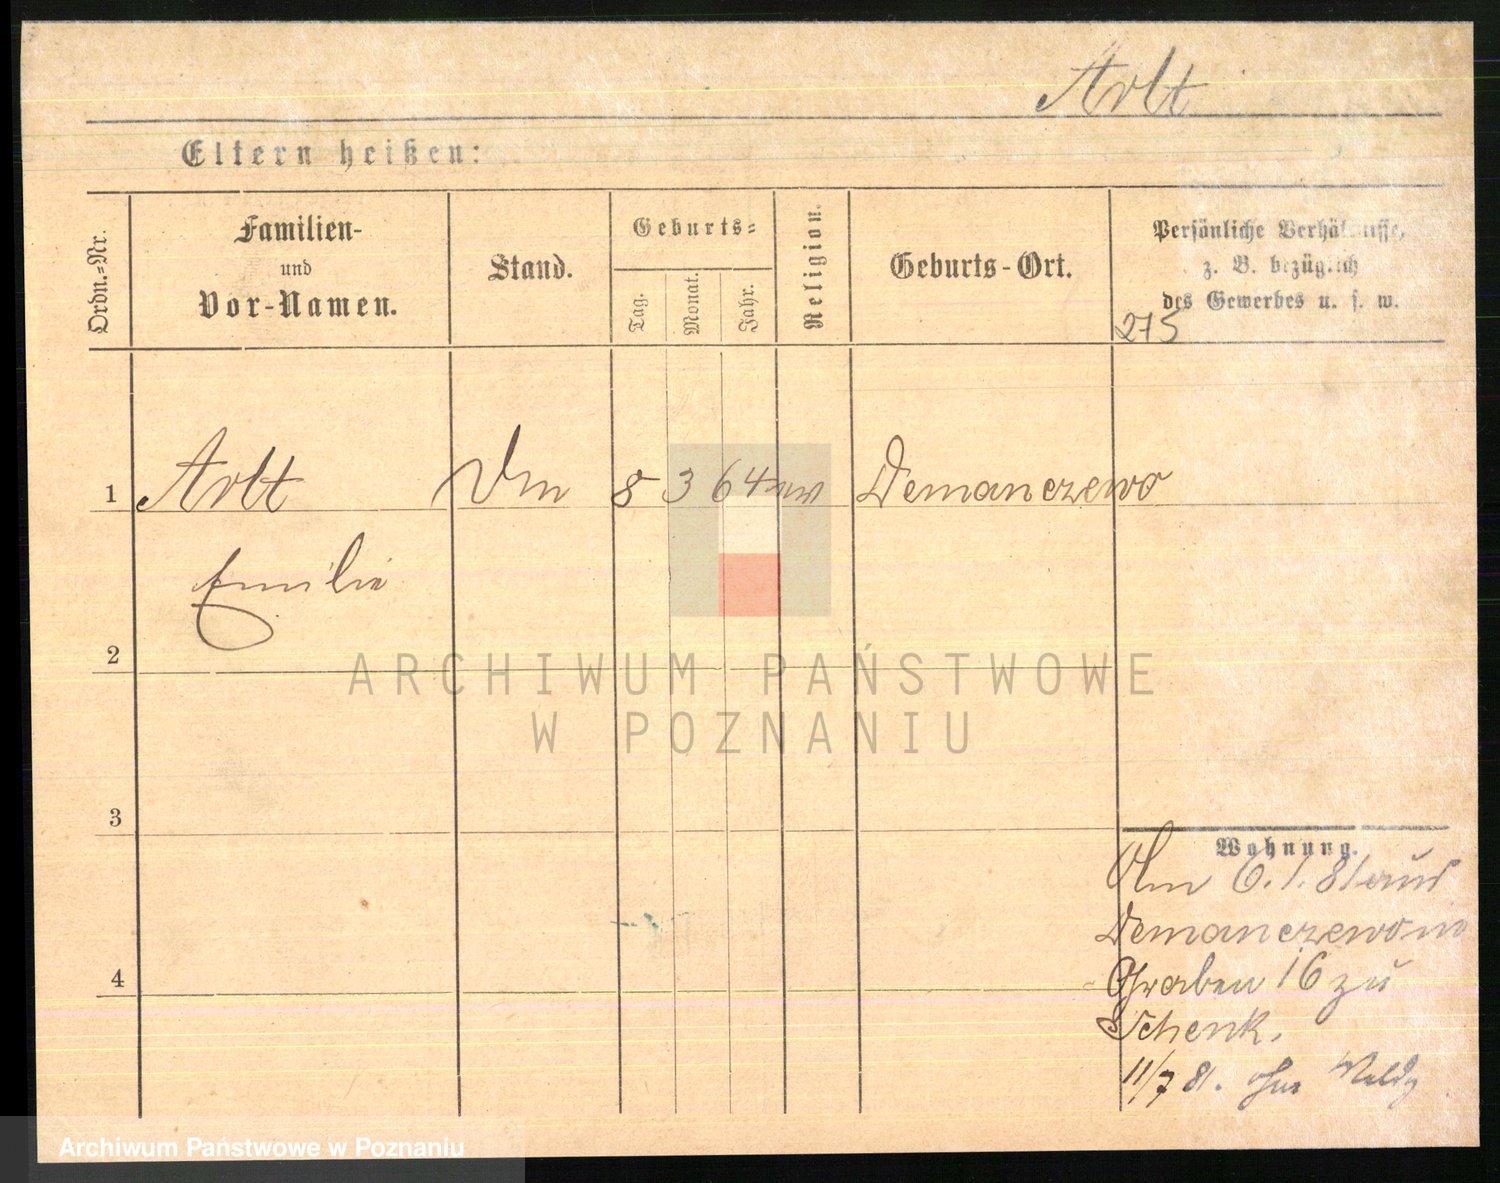 Arlt
Eltern heißen:
Ordn.-Nr.
Familien-
und
Vor-Namen.
Stand.
Geburts-
Tag.
Monat.
Jahr.
Religion.
Geburts-Ort.
Persönliche Verhältnisse,
z. B. bezüglich
des Gewerbes u. s. w.
275
1 Arlt 8 3 64 Demanczewo
Emilie
2
3
4
Wohnung.
6. 1. 81 aus
Demanczewo in
Graben 16 zu
Schenk.
11/7 81. ohne Meldg
ARCHIWUM PAŃSTWOWE
W POZNANIU
Archiwum Państwowe w Poznaniu